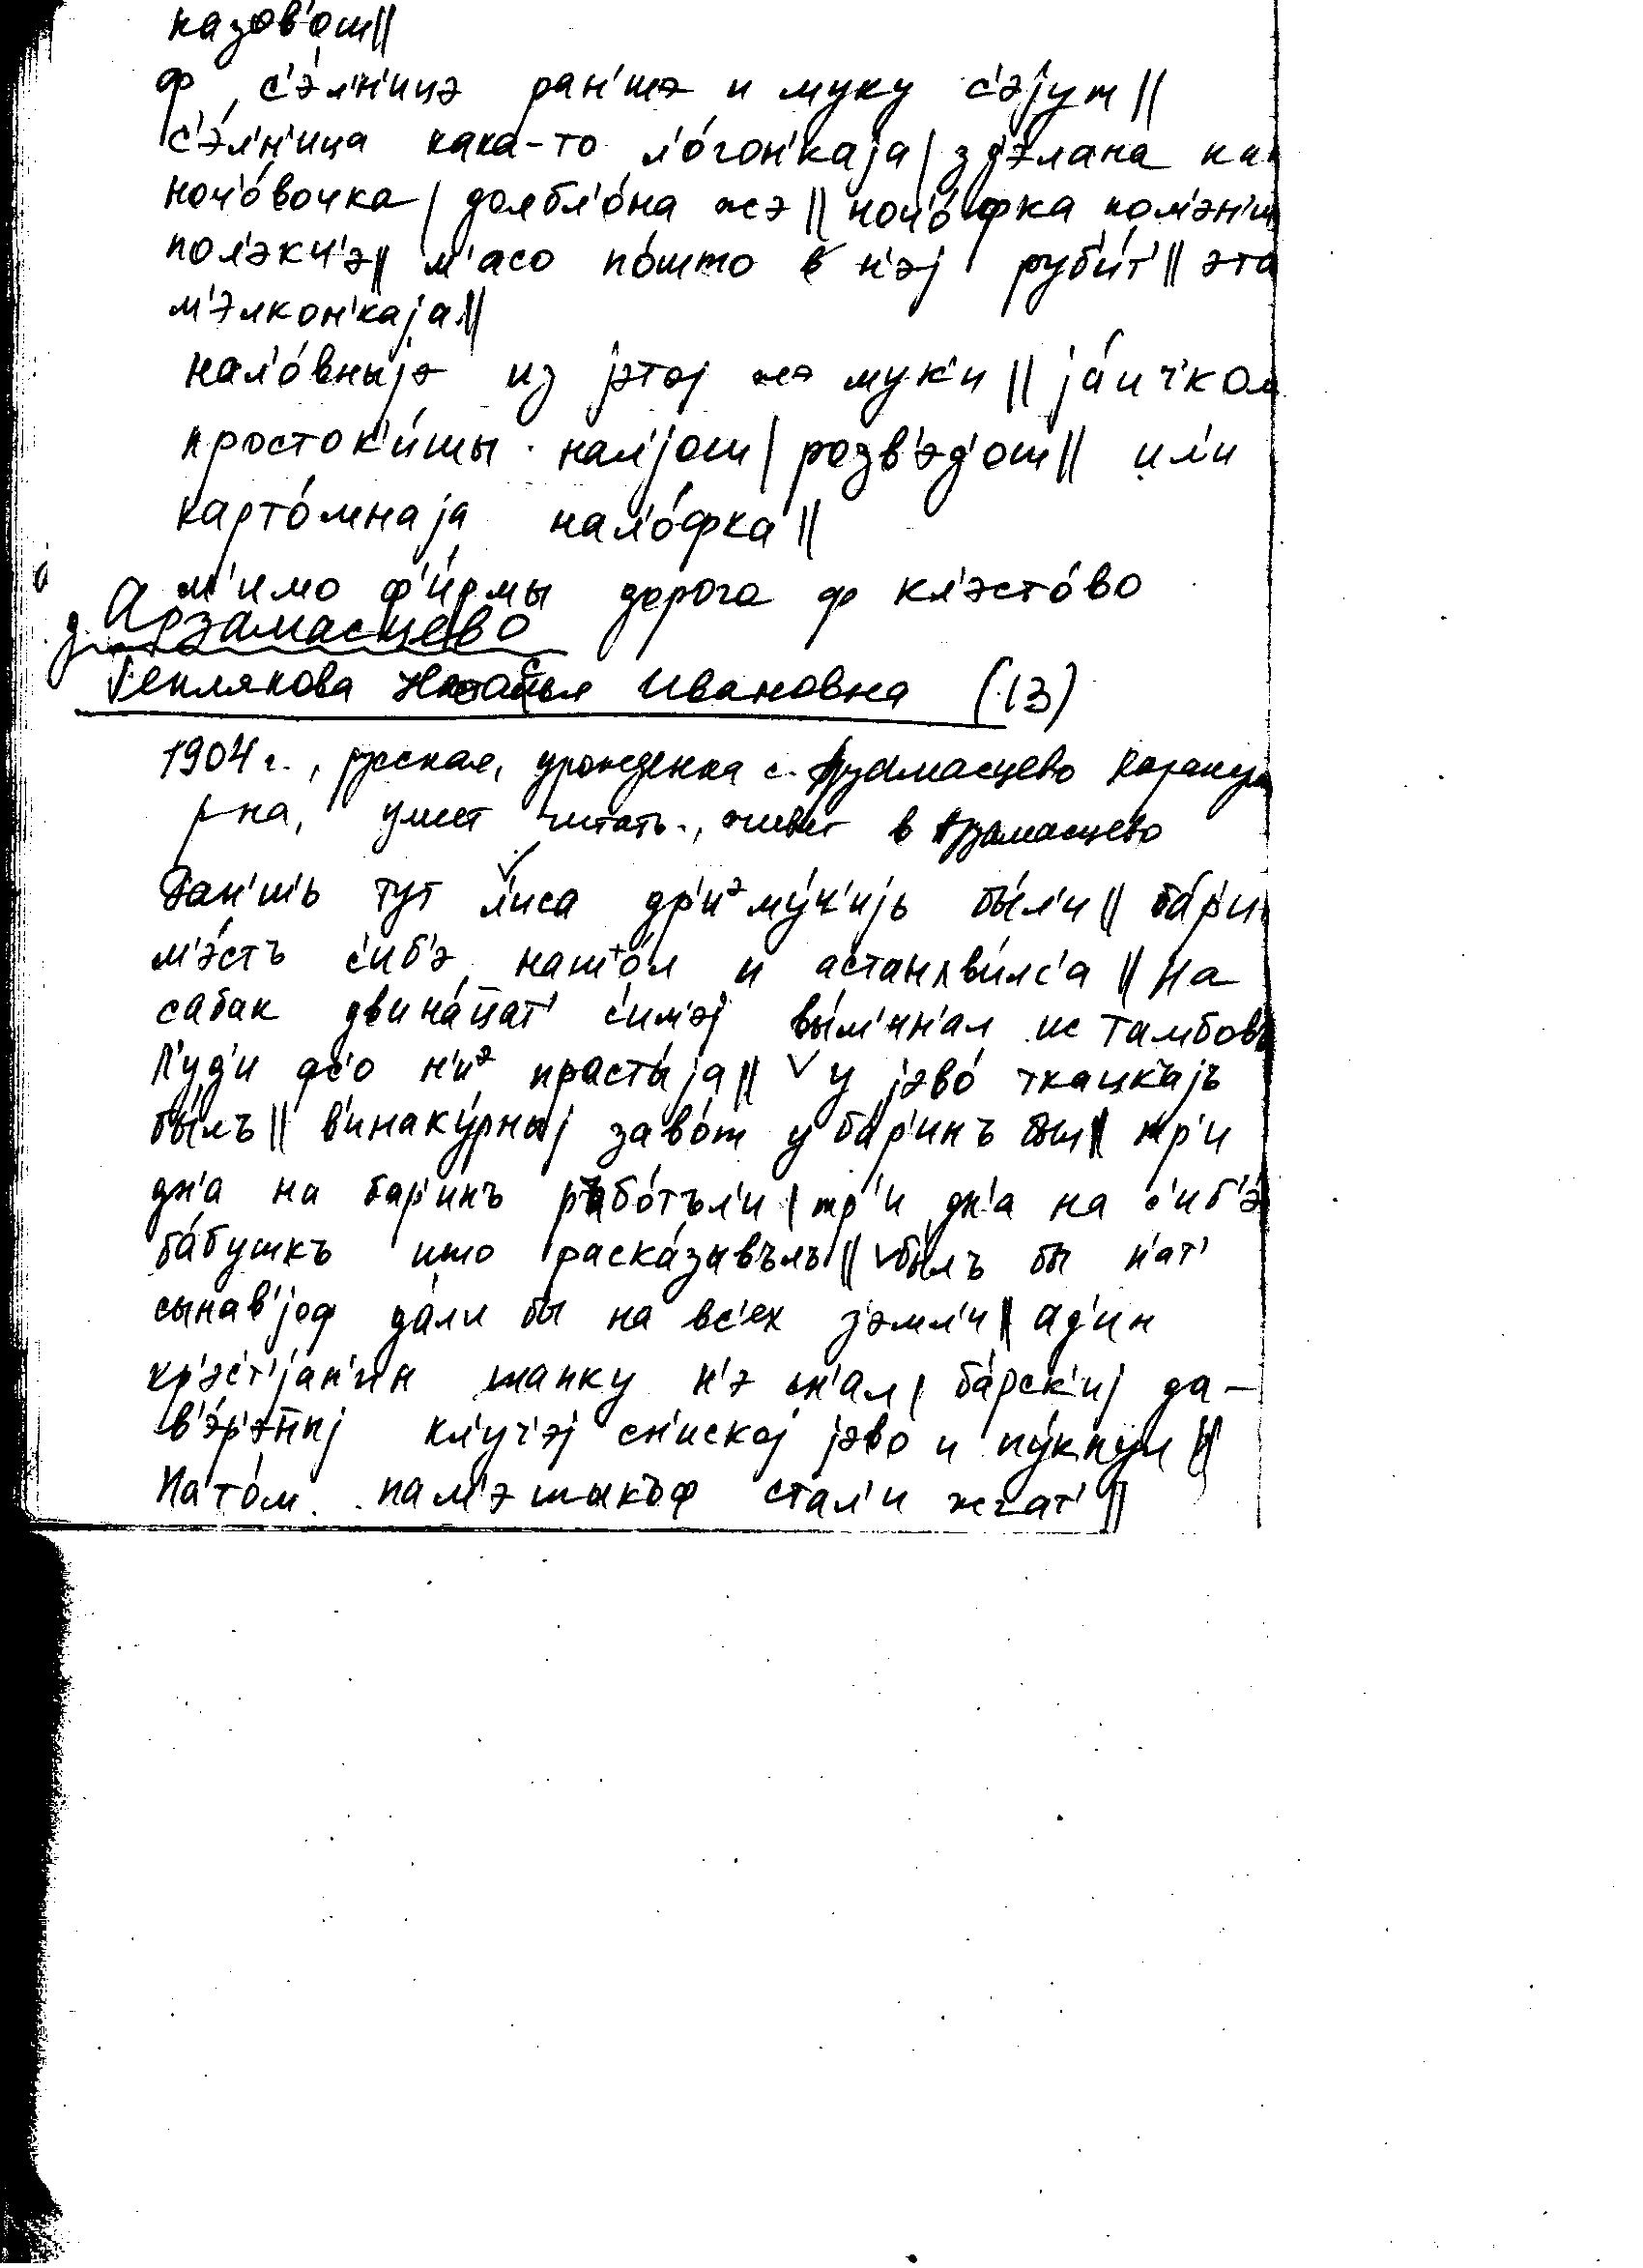 назов'ош||
ф с'э́л'н'ицэ ран'шэ и муку с'эjут||
с'э́л'н'ица кака-то л'о́гон'каjа| зд'элана
ноч'о́вочка| долбл'о́на жэ|| ноч'о́фка
пол'экч'э|| м'асо по́што в н'эj руби́т'|| эта
м'элкон'каjа||
нал'о́вныjэ из jэтоj жэ мук'и|| jа́ич'ком
просток'и́шы нал'jош| розв'эд'ош|| ил'и
карто́мнаjа нал'о́фка||
м'имо ф'и́рмы дорога ф кл'эсто́во
д. Арзамасцево
Теплякова Ивановна (13)
1904 г., русская, уроженка с. Арзамасцево
р-на, умеет читать, живет в Арзамасцево
Ран'шь тут л'иса др'иᵊму́ч'иjь бы́л'и||
м'э́стъ с'иб'э нашо́л и астанʌви́лс'а || На
сабак двина́цат' с'им'эj вы́м'ин'ал ис Тамбовъ
Л'у́д'и фс'о н'иᵊ прасты́jа|| у jэво́ ткацкъjъ
бы́лъ|| в'инаку́рныj заво́т у ба́р'инъ был|| тр'и
дн'а на бар'инъ рʌбо́тъл'и| тр'и дн'а на с'иб'э́
ба́бушкъ што раска́зывълъ|| былъ бы п'ат'
сынав'jоф да́ли бы на вс'ех з'эмл'и|| Ад'ин
кр'эст'jан'ин шапку н'э сн'ал| ба́рск'иj да-
в'э́р'эныj кл'уч'эj сп'искоj jэво и пу́кнул||
Пато́м пам'эшыкъф стал'и жгат'||